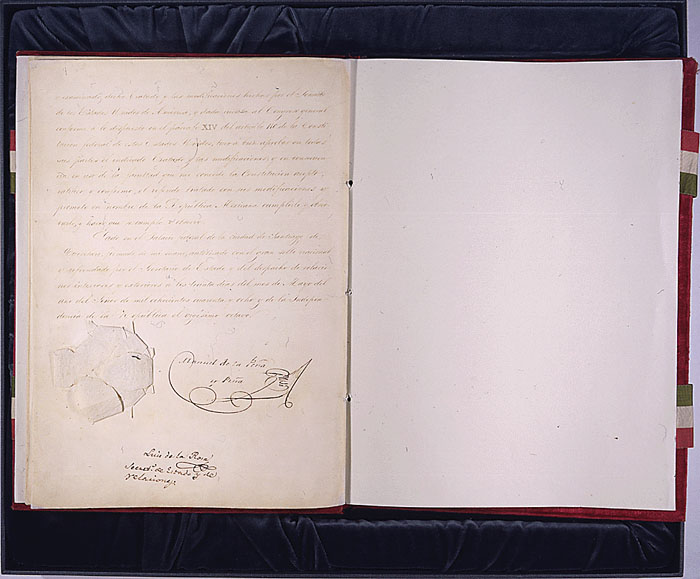 examinado dicho Tratado y las modificaciones hechas por el Senado
de los Estados Unidos de America, y dado cuenta al Congreso general
conforme a lo dispuesto en el párrafo XIV del artículo 110 de la Consti-
tucion federal de estos Estados Unidos, tuvo a bien aprobar en todas
sus partes el indicado Tratado y las modificaciones; y en consecuen-
cia, en uso de la facultad que me concede la Constitucion acepto,
ratifico y confirmo el referido tratado con sus modificaciones y
prometo en nombre de la República Mexicana cumplirlo y obser-
varlo, y hacer que se cumpla y observe.
Dado en el Palacio federal de la ciudad de Santiago de
Queretaro, firmado de mi mano, autorizado con el gran sello nacional
y refrendado por el Secretario de Estado y del despacho de relacio-
nes interiores y exteriores a los treinta dias del mes de Mayo del
año del Señor de mil ochocientos cuarenta y ocho y de la Indepen-
dencia de la República el vigésimo octavo.
Manuel de la Peña
y Peña
Luis de la Rosa
Secret.º de Estado y de
relaciones